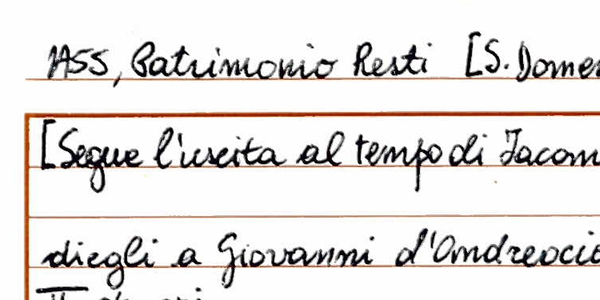 ASS, Patrimonio Resti [S. Domen
[Segue l'uscita al tempo di Jacom
diegli a Giovanni d'Andreoccio